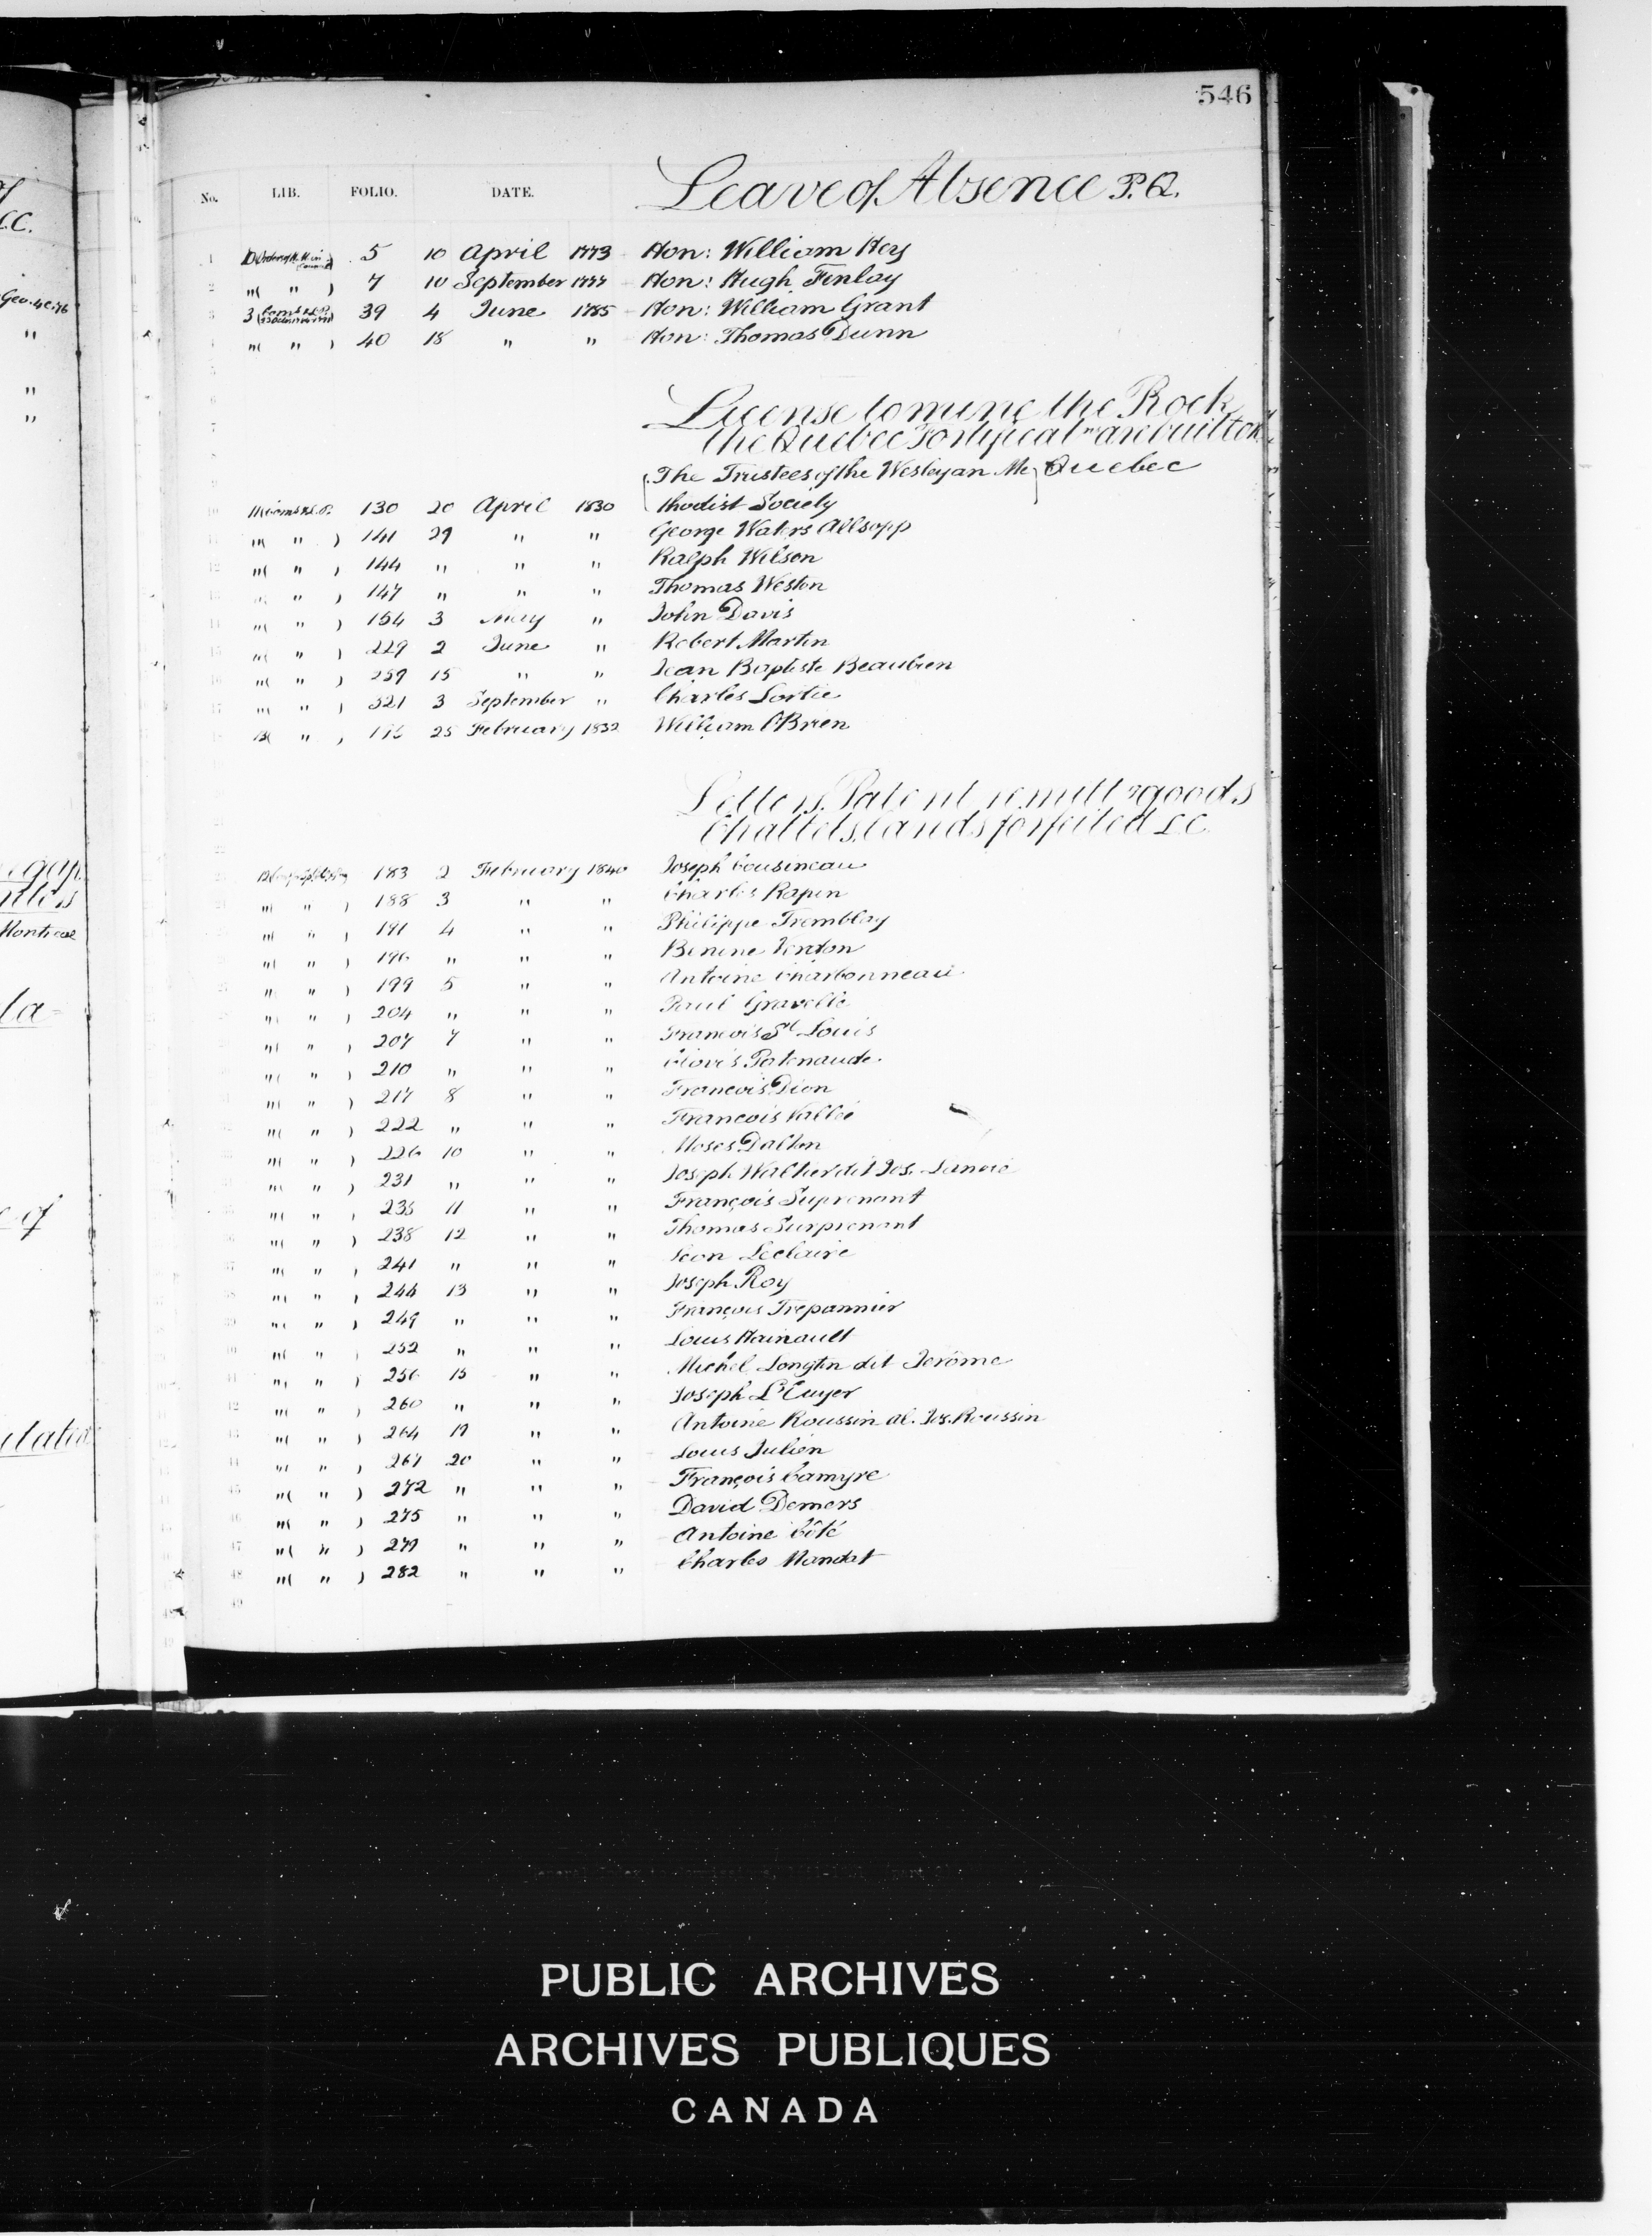 546
No. LIB. FOLIO. DATE. Leave of Absence P.Q.
1 5 10 April 1773 Hon: William Hey
2 "( " ) 7 10 September 1777 Hon: Hugh Finlay
3 3 39 4 June 1785 Hon: William Grant
"( " ) 40 18 " " Hon: Thomas Dunn
License to mine the Rock
the Quebec Fortificat'ns are built on
The Trustees of the Wesleyan Me} Quebec
130 20 April 1830 thodist Society
"( " ) 141 29 " " George Waters Allsopp
"( " ) 144 " " " Ralph Wilson
" ) 147 " " " Thomas Weston
"( " ) 154 3 May " John Davis
"( " ) 229 2 June " Robert Martin
"( " ) 259 15 " " Jean Baptiste Beaubien
"( " ) 321 3 September " Charles Lortie
13( " ) 25 February 1832 William O'Brien
Letters Patent remitt'g goods
Chattels, lands forfeited L.C.
183 2 February 1840 Joseph Cousineau
"( " ) 188 3 " " Charles Rapin
"( " ) 191 4 " " Philippe Tremblay
"( " ) 196 " " " Benine Verdon
"( " ) 199 5 " " Antoine Charbonneau
"( " ) 204 " " " Paul Gravelle
"( " ) 207 7 " " Francois St Louis
"( " ) 210 " " " Clovis Patenaude
"( " ) 217 8 " " Francois Dion
"( " ) 222 " " " Francois Vallée
"( " ) 226 10 " " Moses Dalton
"( " ) 231 " " " Joseph dit Jos.
"( " ) 235 11 " " François Suprenant
"( " ) 238 12 " " Thomas Surprenant
"( " ) 241 " " " Léon Leclaire
"( " ) 244 13 " " Joseph Roy
"( " ) 249 " " " François Trepannier
"( " ) 252 " " " Louis Hainault
"( " ) 256 15 " " Michel Longtin dit Jérôme
"( " ) 260 " " " Joseph L'Ecuyer
"( " ) 264 19 " " Antoine Roussin al. Jos. Roussin
"( " ) 267 20 " " Louis Julien
"( " ) 272 " " " François Camyre
"( " ) 275 " " " David Demers
"( " ) 279 " " " Antoine Côté
"( " ) 282 " " " Charles Mondat
PUBLIC ARCHIVES
ARCHIVES PUBLIQUES
CANADA